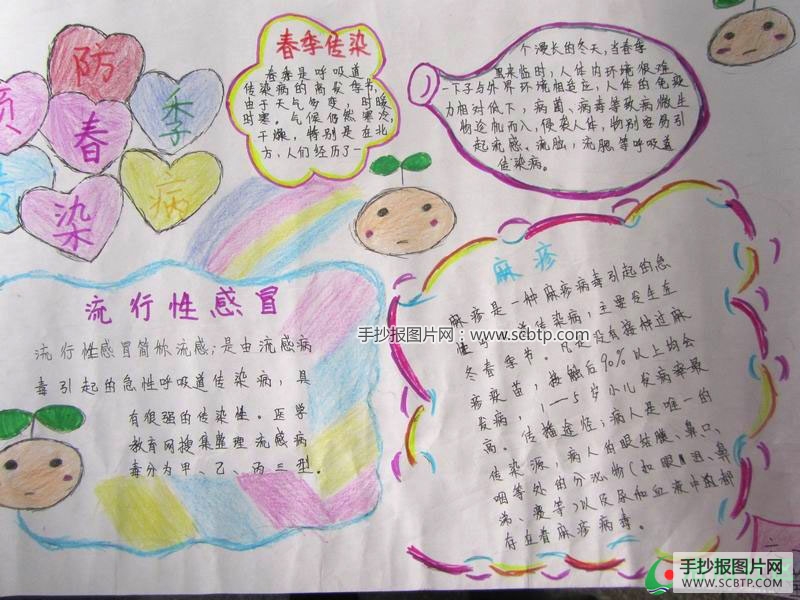 防
预
季
春
传
病
染
春季传染
春季是呼吸道
传染病的高发季节,
由于天气多变,时暖
时寒。气候仍然寒冷,
干燥,特别是在北
方,人们经历了一
个漫长的冬天,当春季
里来临时,人体内环境很难
一下子与外界环境相适应,人体的免疫
力相对低下,病菌、病毒等致病微生
物趁机而入,侵袭人体,特别容易引
起流感、流脑,流腮等呼吸道
传染病。
流行性感冒
流行性感冒简称流感;是由流感病
毒引起的急性呼吸道传染病,具
有很强的传染性。医学
教育网搜集整理流感病
毒分为甲、乙、丙三型。
麻疹
麻疹是一种麻疹病毒引起的急
性 传染病,主要发生在
冬春季节。凡是没有接种过麻
疹疫苗,接触后90%以上均会
发病,1—5岁小儿发病率最
高。传播途径:病人是唯一的
传染源,病人的眼结膜、鼻口、
咽等处的分泌物(如眼 泪、鼻
涕、痰等)以及尿和血液中都
存在着麻疹病毒。
手抄报图片网:www.scbtp.com
手抄报图片网
WWW.SCBTP.COM